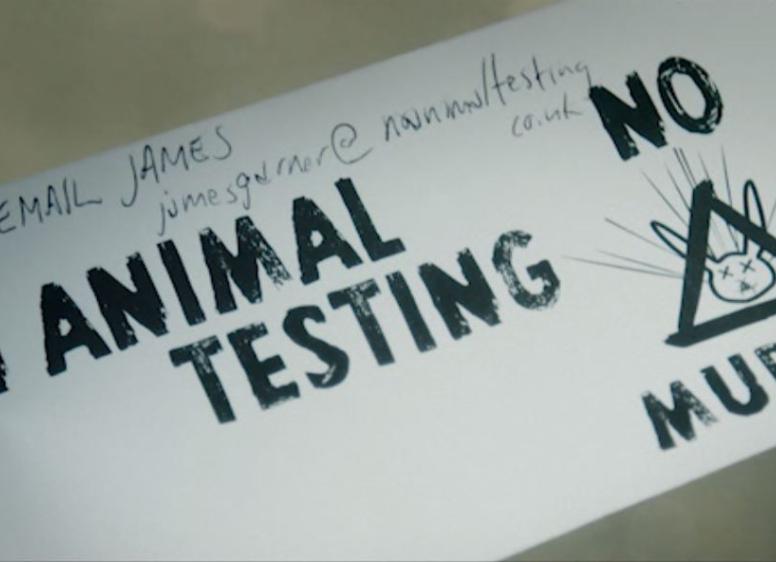 EMAIL JAMES
jamesgarner@noanimaltesting
co.uk
ANIMAL
TESTING
NO